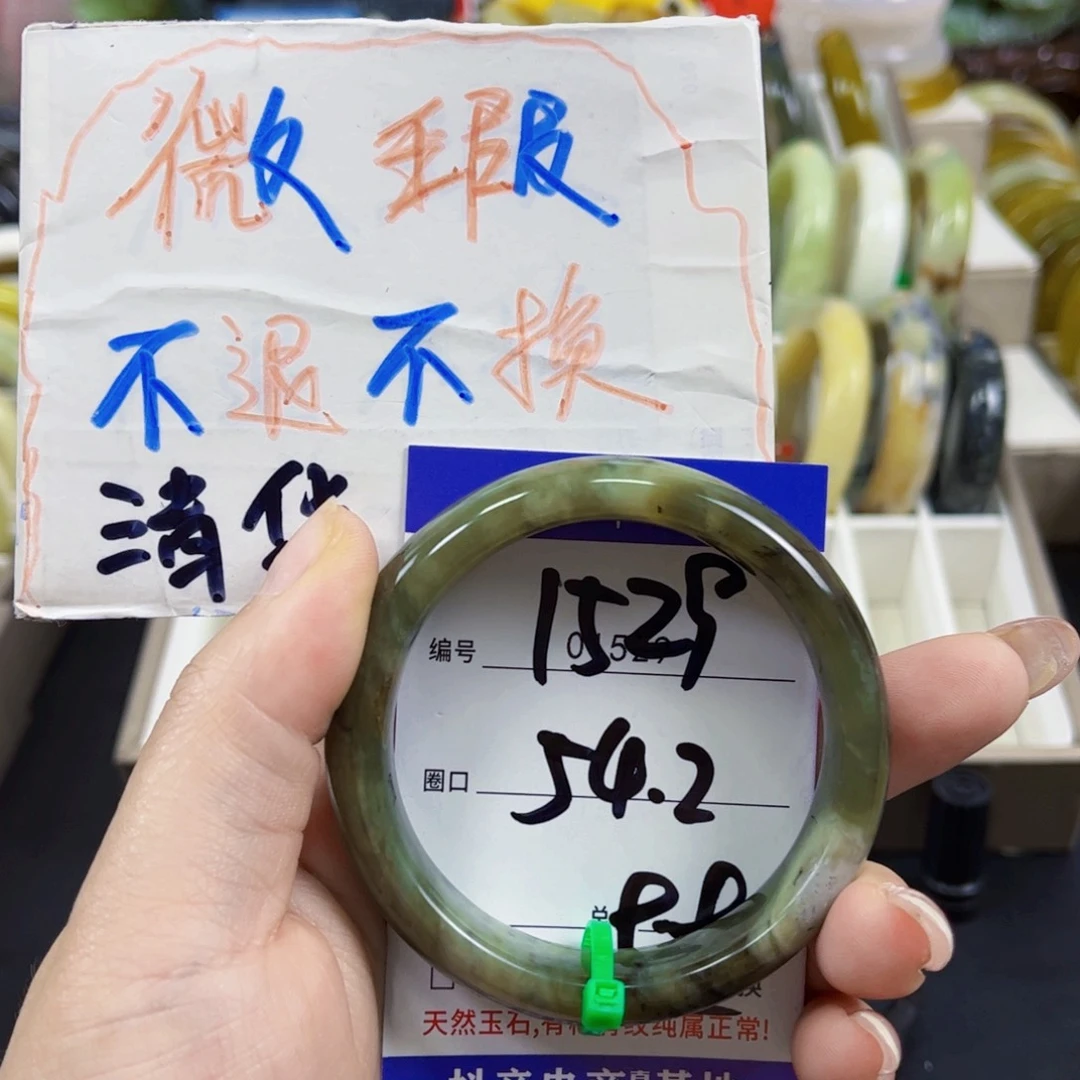 微瑕
不退不换
清货
编号 01529 1529
圈口 54.2
总 99
天然玉石,有 纹纯属正常!